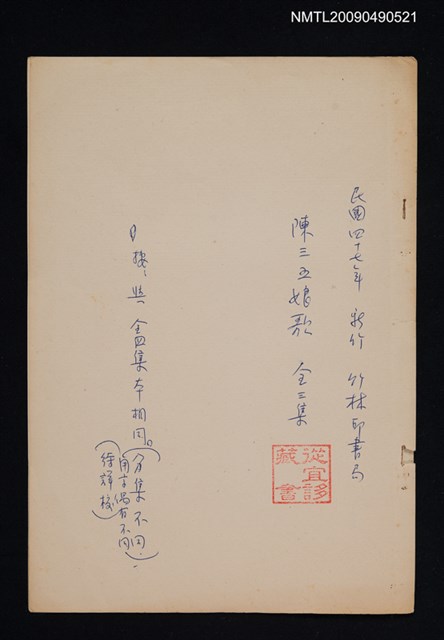 NMTL20090490521
民國四十七年 新竹 竹林印書局
陳三五娘歌 全三集
從宜誃
藏書
與全四集本相同。(分集不同)
用字偶有不同